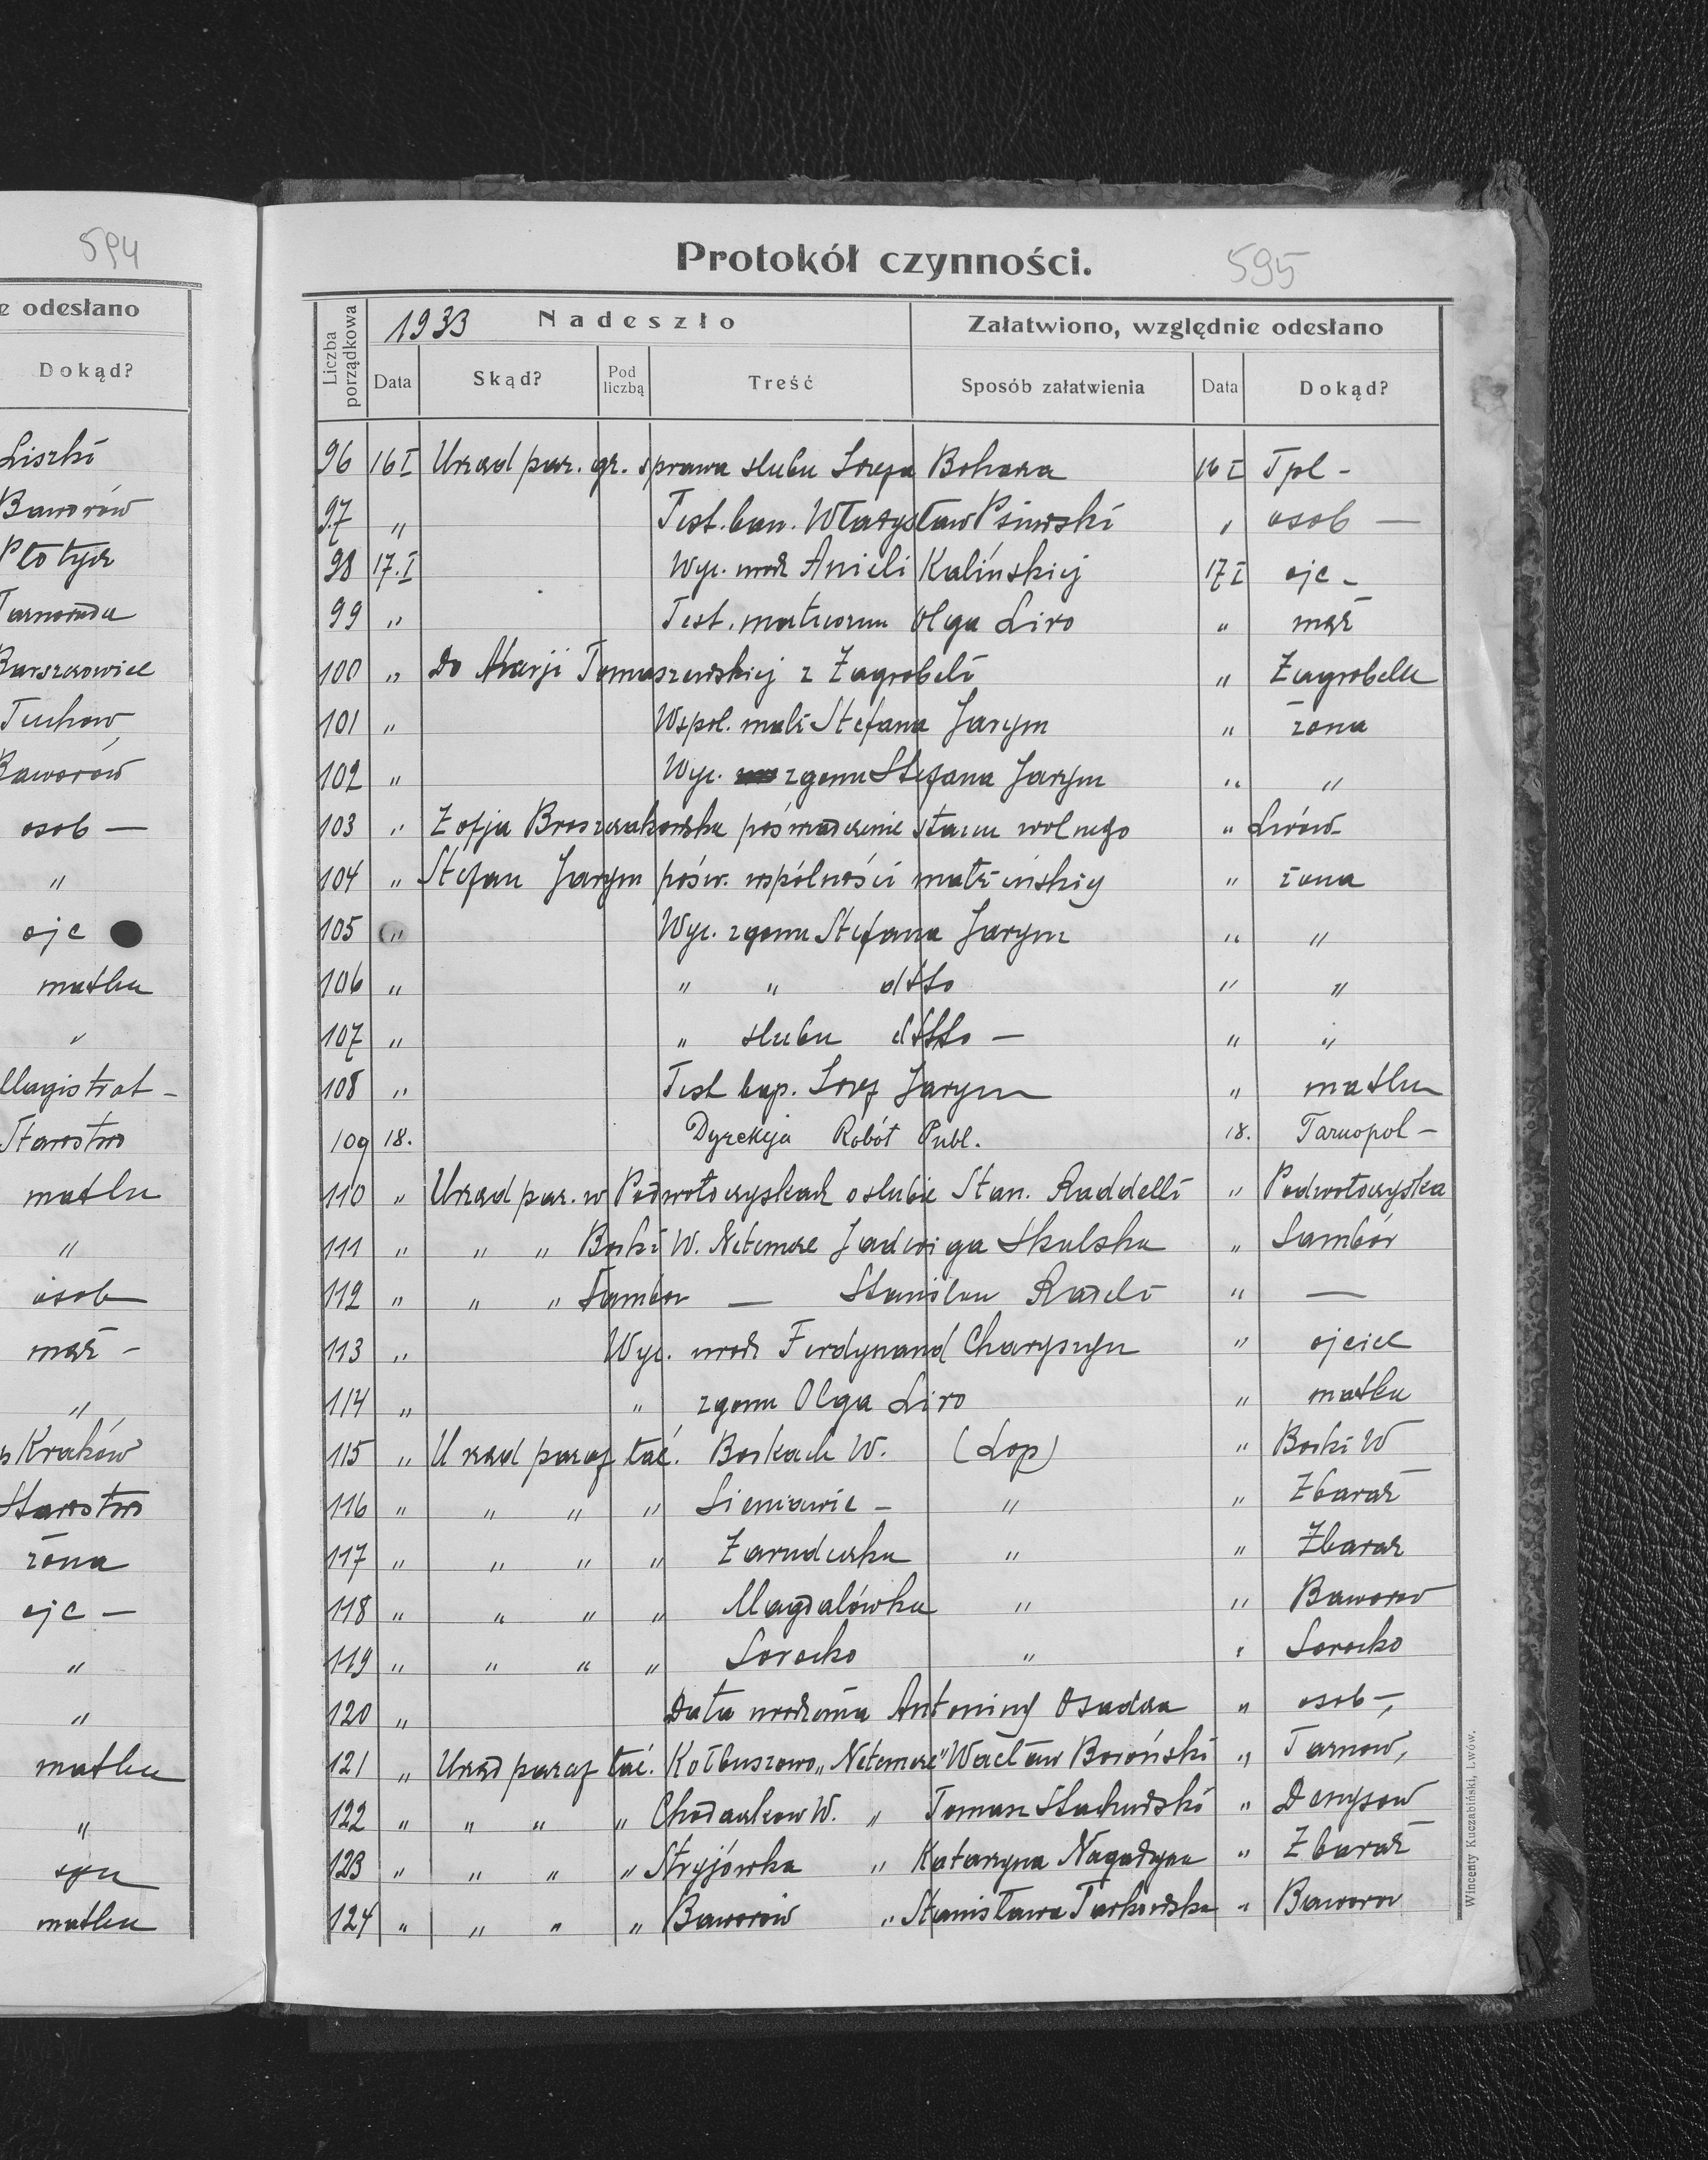 594
e odesłano
Dokąd?
Liszki
Baworów
Tuchow
Baworów
osob —
"
ojc
matka
"
Magistrat -
Starostwo
matka
"
osob
mąż -
"
Kraków
Starostwo
żona
ojc —
"
"
matka
"
syn
matka
Protokół czynności.
595
Liczba porządkowa
1933 Nadeszło
Załatwiono, względnie odesłano
Data Skąd? Pod liczbą Treść Sposób załatwienia Data Dokąd?
96 16 I Urząd par. gr. sprawa slubu Bohera 16 I Tpl -
97 " Test. ban. " osob —
98 17. I Wyc. urodz Anieli Kalińskiej 17 I ojc -
99 " Test. Olga Liro " mąż
100 " Do Marji Tomaszewskiej z Zagrobeli " Zagrobella
101 " Wspol. małż Stefana Jarym " żona
102 " Wyc. zgonu Stefana Jarym " "
103 " Zofja poświadczenie stanu wolnego " Lwów
104 " Stefan Jarym pośw. wspólności małżeńskiej " żona
105 " Wyc. zgonu Stefana Jarym " "
106 " " " dtto " "
107 " " slubu dtto — " "
108 " Test bap. Jarym " matka
109 18. Dyrekcja Robót Publ. 18. Tarnopol -
110 " Urząd par. w Podwołoczyskach o slubie Stan. Raddelli " Podwołoczyska
111 " " " Borki W. Netemere Jadwiga Skulska " Sambór
112 " " " Sambor — Stanislaw Radeli " —
113 " Wyc. urodz Ferdynand Charyszyn " ojciec
114 " " zgonu Olga Liro " matka
115 " Urząd paraf łać. Borkach W. (dop) " Borki W
116 " " " " Sieniawie - " " Zbaraż
117 " " " " Zarudeczku " " Zbaraż
118 " " " " Magdalówka " " Baworow
119 " " " " Sorocko " " Sorocko
120 " Data urodzenia Antoniny Osadca " osob -
121 " Urząd paraf łać. Kolbuszowo „Netemere" Wacław Boroński " Tarnow,
122 " " " " Chodaczkow W. " Tomasz Stachurski " Denysow
123 " " " " Stryjówka " Katarzyna " Zbaraż
124 " " " " Baworów " Stanisława Turkowska " Baworow
Wincenty Kuczabiński, Lwów.